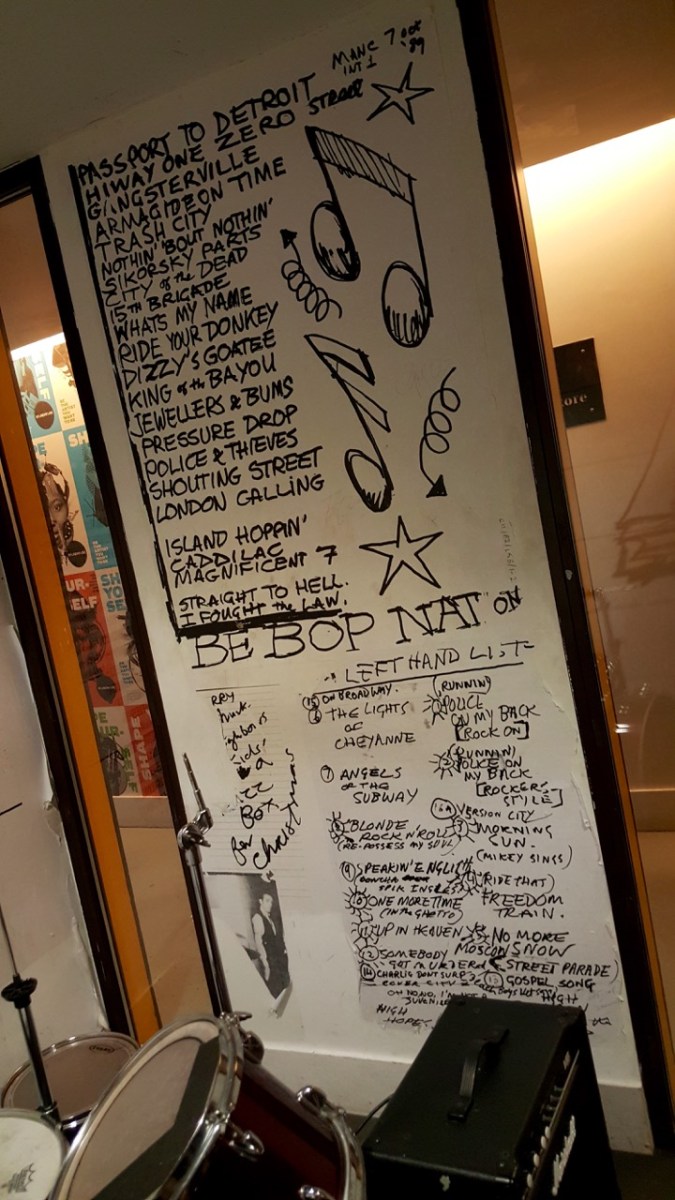 MANC 7 OCT '89
INT 1
PASSPORT TO DETROIT STREET
HIWAY ONE ZERO
GANGSTERVILLE
ARMAGIDEON TIME
TRASH CITY
NOTHIN' 'BOUT NOTHIN'
SIKORSKY PARTS
CITY of the DEAD
15TH BRIGADE
WHATS MY NAME
RIDE YOUR DONKEY
DIZZY'S GOATEE
KING of the BAYOU
JEWELLERS & BUMS
PRESSURE DROP
POLICE & THIEVES
SHOUTING STREET
LONDON CALLING
ISLAND HOPPIN'
CADDILAC
MAGNIFICENT 7
STRAIGHT TO HELL.
I FOUGHT the LAW.
BE BOP NATION
LEFT HAND LIST
ON BROADWAY.
THE LIGHTS
OF
CHEYANNE
7 ANGELS
OF THE
SUBWAY
BLONDE
ROCK N' ROLL
(RE-POSSESS MY SOUL)
9 SPEAKIN' ENGLISH
SPIK INGLES
10 ONE MORE TIME
(IN THE GHETTO)
11 UP IN HEAVEN
12 SOMEBODY
GOT MURDERED
14 CHARLIE DONT SURF
(RUNNIN)
POLICE
ON MY BACK
[ROCK ON]
(RUNNIN)
POLICE ON
MY BACK
[ROCKERS
STYLE]
VERSION CITY
MORNING
SUN.
(MIKEY SINGS)
(RIDE THAT)
FREEDOM
TRAIN.
NO MORE
MOSCOW SNOW
(STREET PARADE)
GOSPEL SONG
HIGH
HIGH
HOPES
BOX
For
Christmas
SHAPE